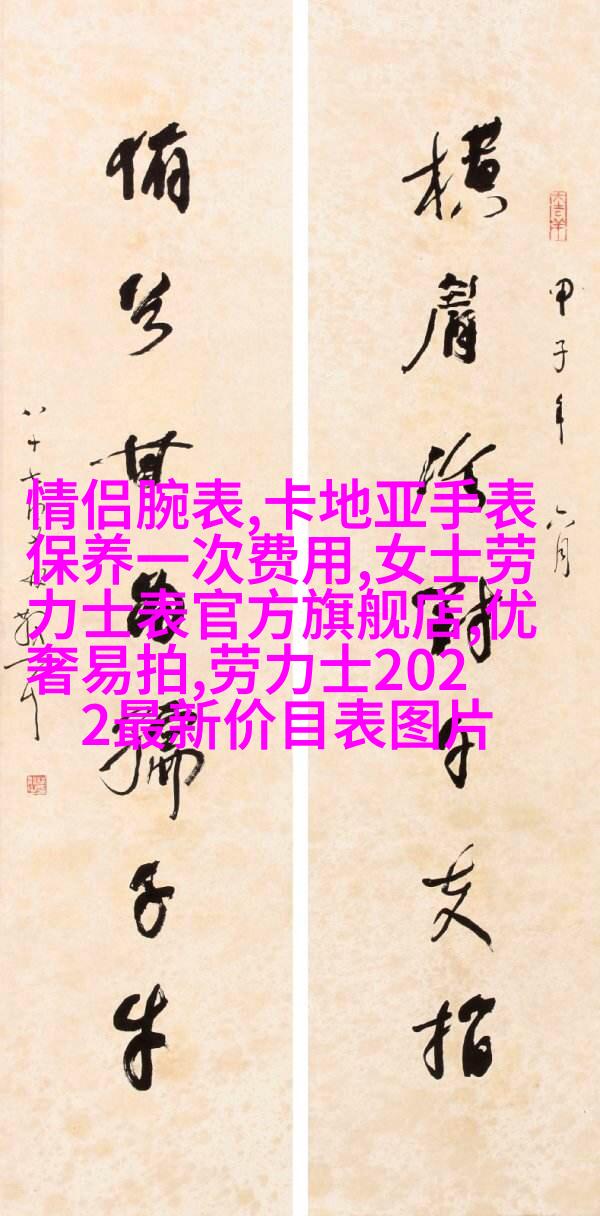 甲子年六月
横眉冷对千夫指
俯首甘为孺子牛
情侣腕表,卡地亚手表
保养一次费用,女士劳
力士表官方旗舰店,优
奢易拍,劳力士202
2最新价目表图片